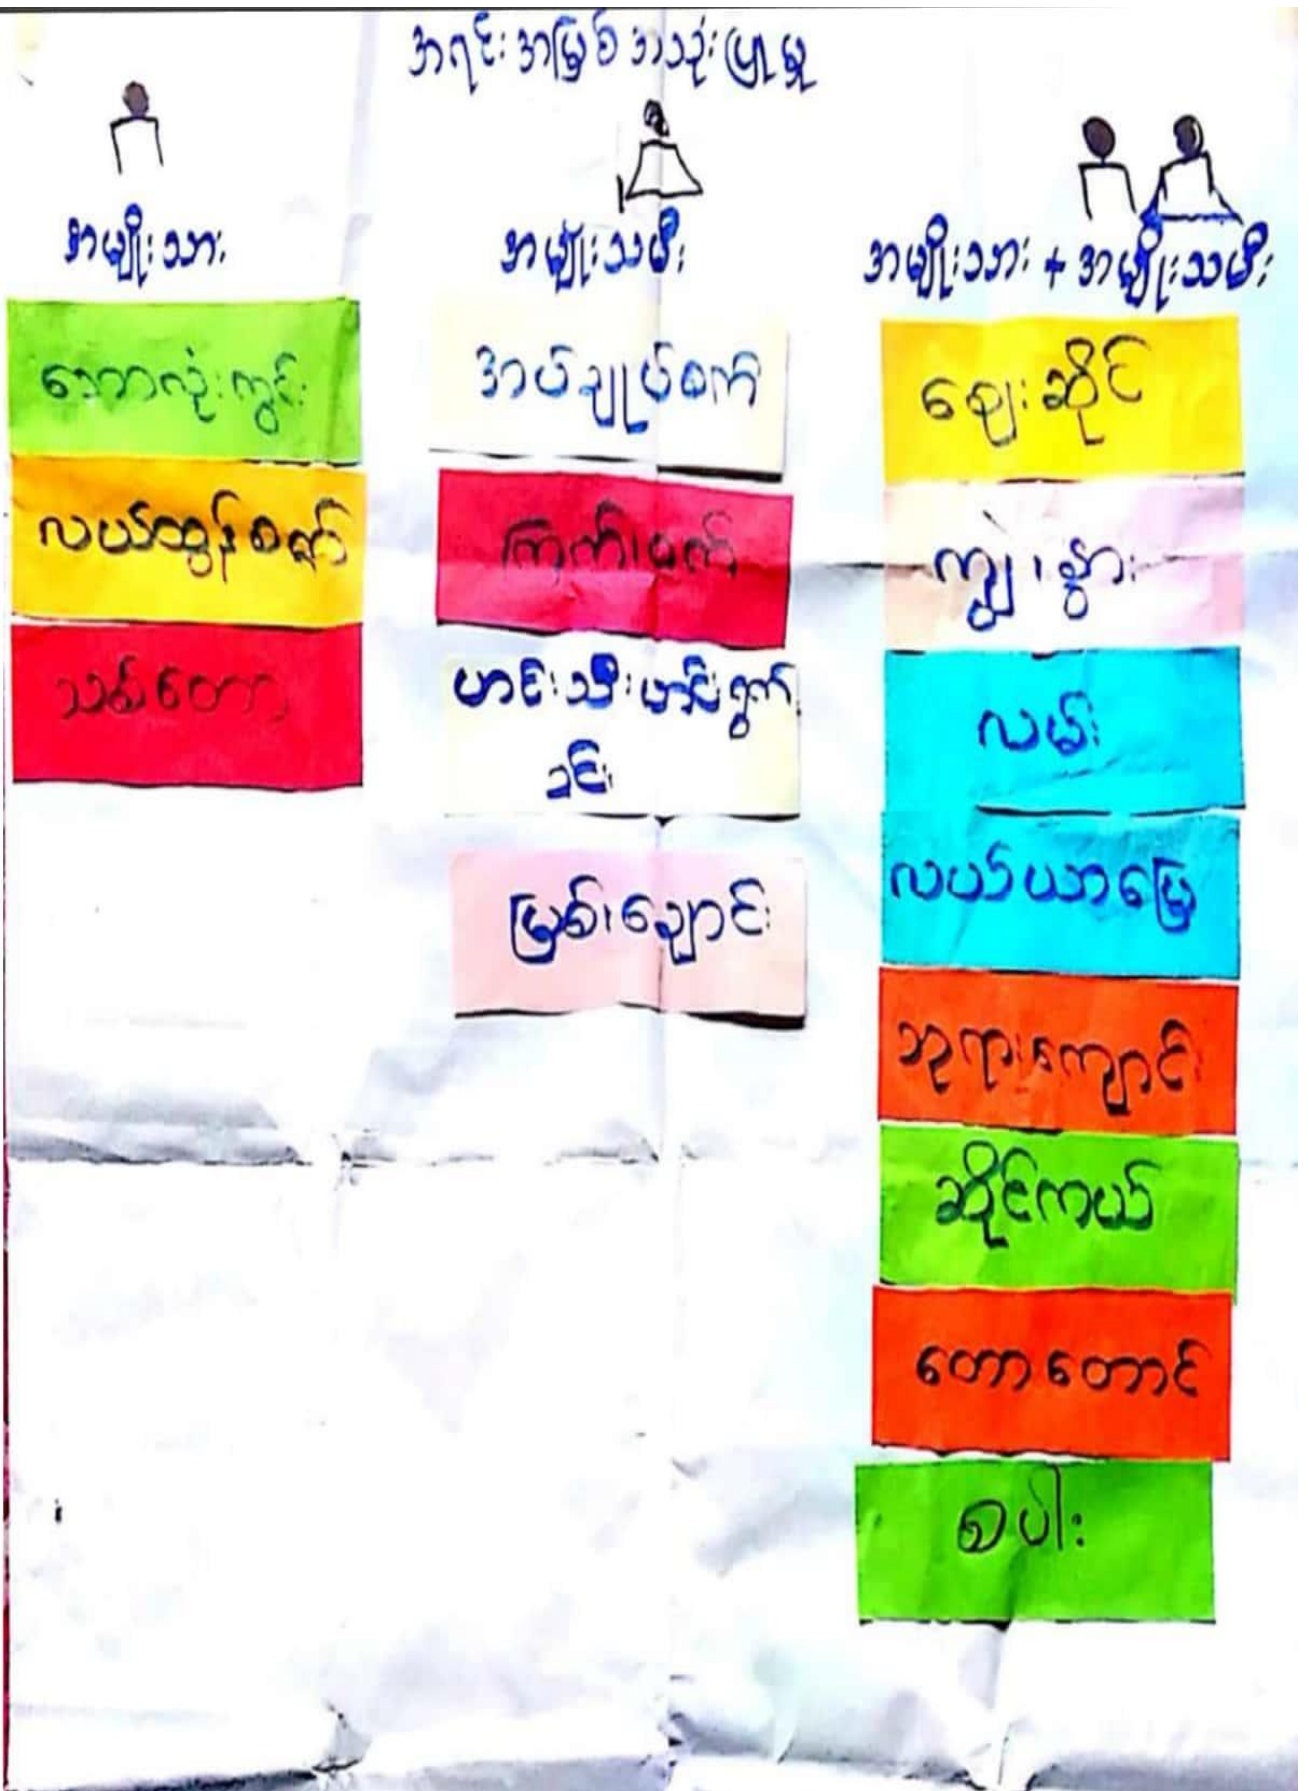 အရင်းအမြစ်အသုံးပြုမှု
အမျိုးသား
ဘောလုံးကွင်း
လယ်ထွန်စက်
သစ်တော
အမျိုးသမီး
အပ်ချုပ်စက်
ကြက်၊ဝက်
ဟင်းသီးဟင်းရွက်
ခင်း
မြစ်၊ချောင်း
အမျိုးသား + အမျိုးသမီး
ဈေးဆိုင်
ကျွဲ၊နွား
လမ်း
လယ်ယာမြေ
ဘုရား၊ကျောင်း
ဆိုင်ကယ်
တောတောင်
စပါး